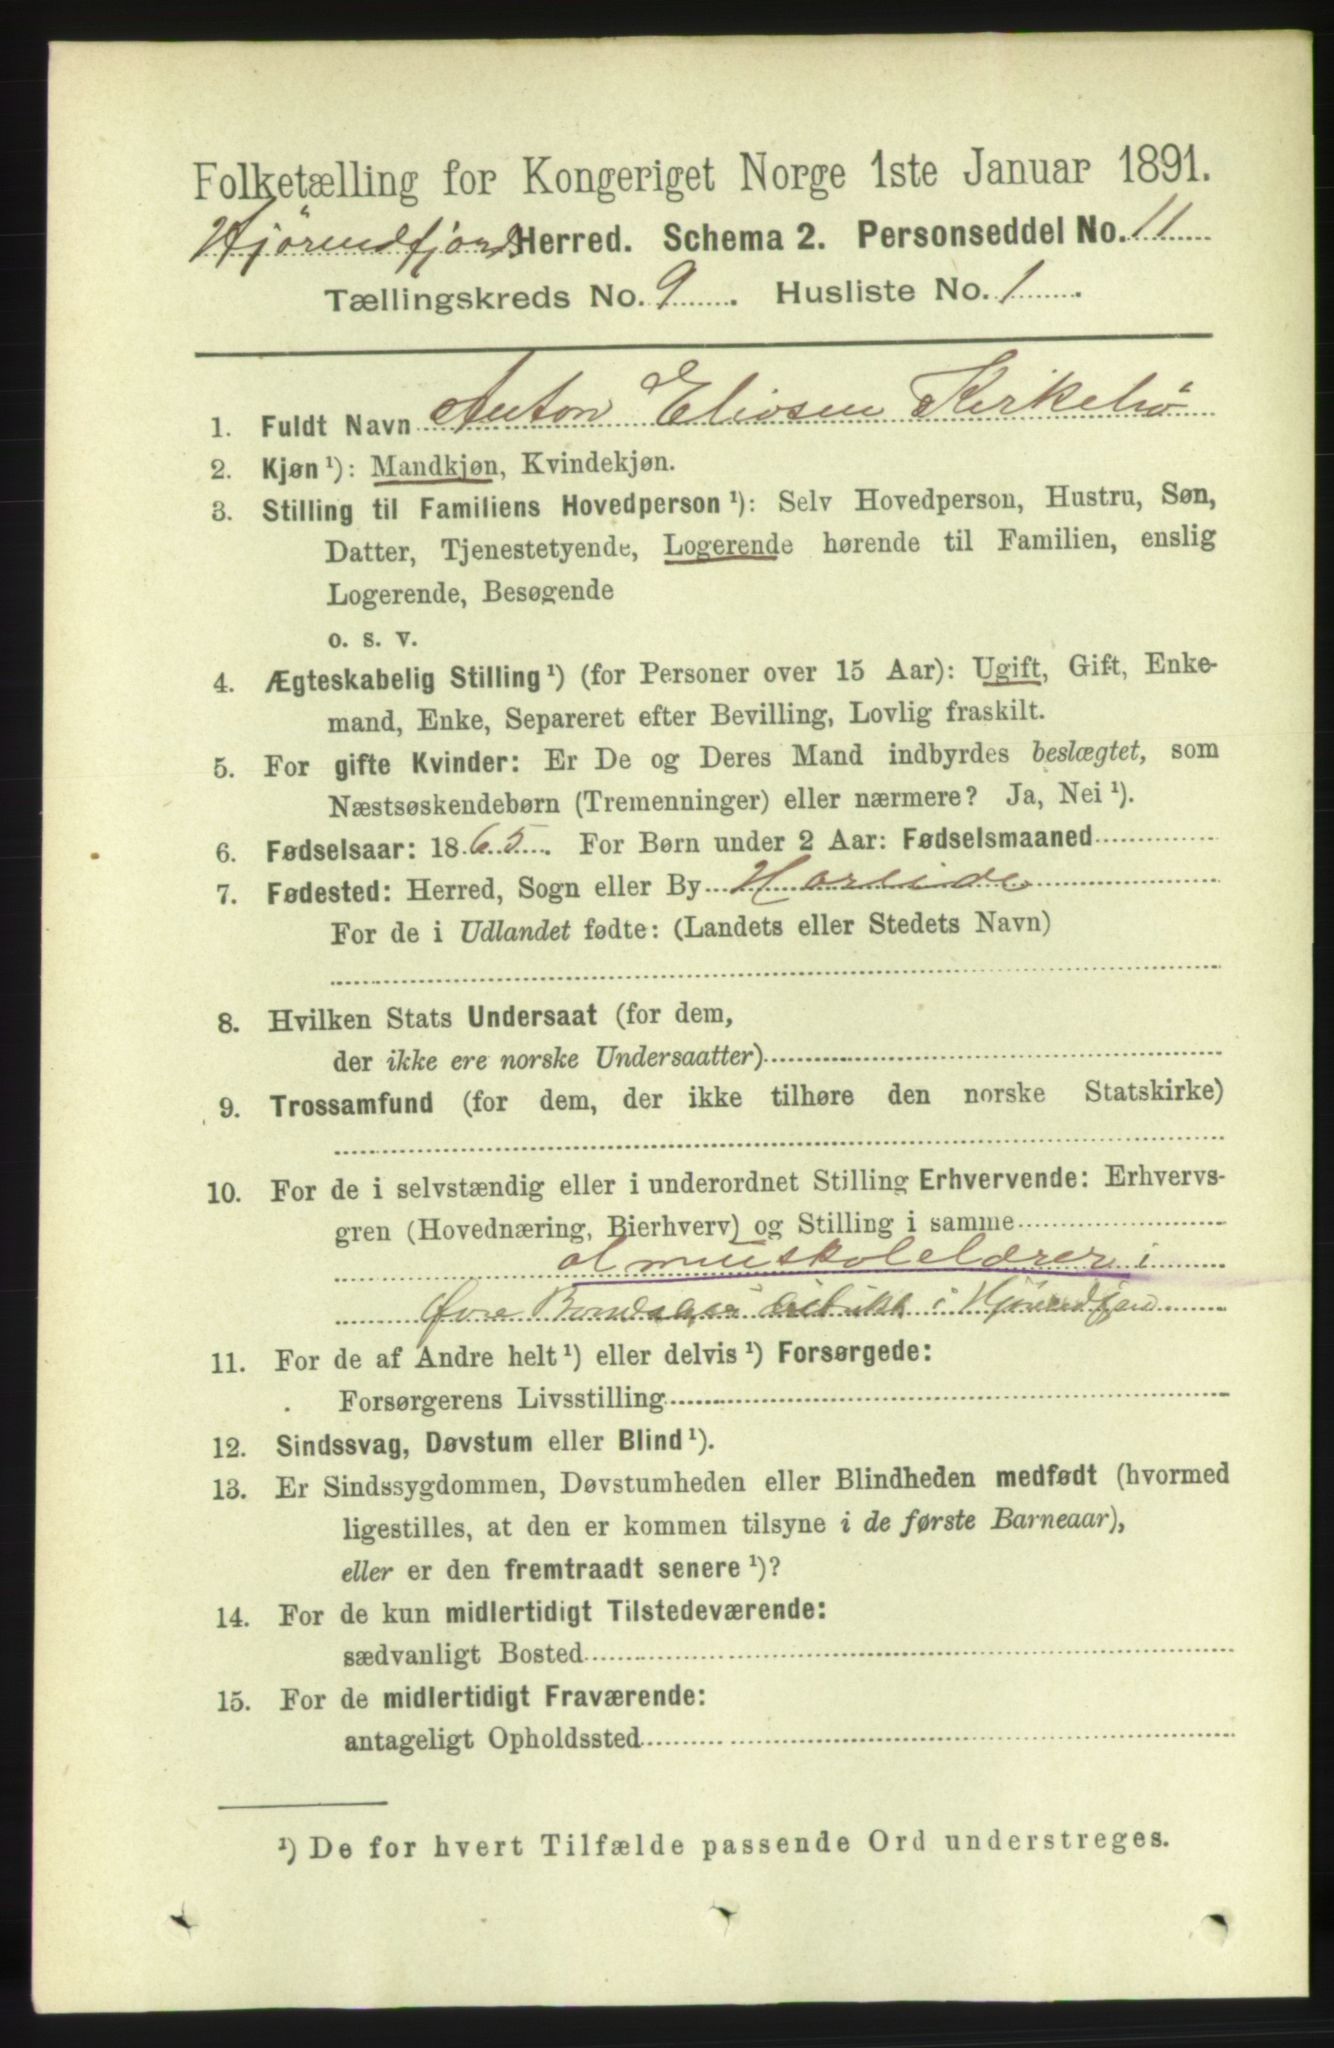 Folketælling for Kongeriget Norge 1ste Januar 1891.
Hjörundfjords Herred. Schema 2. Personseddel No. 11
Tællingskreds No. 9. Husliste No. 1.
1. Fuldt Navn Anton Eliosen
2. Kjøn ¹): Mandkjøn, Kvindekjøn.
3. Stilling til Familiens Hovedperson ¹): Selv Hovedperson, Hustru, Søn,
Datter, Tjenestetyende, Logerende hørende til Familien, enslig
Logerende, Besøgende
o. s. v.
4. Ægteskabelig Stilling ¹) (for Personer over 15 Aar): Ugift, Gift, Enke-
mand, Enke, Separeret efter Bevilling, Lovlig fraskilt.
5. For gifte Kvinder: Er De og Deres Mand indbyrdes beslægtet, som
Næstsøskendebørn (Tremenninger) eller nærmere? Ja, Nei ¹).
6. Fødselsaar: 1865. For Børn under 2 Aar: Fødselsmaaned
7. Fødested: Herred, Sogn eller By Hareide
For de i Udlandet fødte: (Landets eller Stedets Navn)
8. Hvilken Stats Undersaat (for dem,
der ikke ere norske Undersaatter)
9. Trossamfund (for dem, der ikke tilhøre den norske Statskirke)
10. For de i selvstændig eller i underordnet Stilling Erhvervende: Erhvervs-
gren (Hovednæring, Bierhverv) og Stilling i samme
almueskolelærer i
i
11. For de af Andre helt ¹) eller delvis ¹) Forsørgede:
Forsørgerens Livsstilling
12. Sindssvag, Døvstum eller Blind ¹).
13. Er Sindssygdommen, Døvstumheden eller Blindheden medfødt (hvormed
ligestilles, at den er kommen tilsyne i de første Barneaar),
eller er den fremtraadt senere ¹)?
14. For de kun midlertidigt Tilstedeværende:
sædvanligt Bosted
15. For de midlertidigt Fraværende:
antageligt Opholdssted
¹) De for hvert Tilfælde passende Ord understreges.